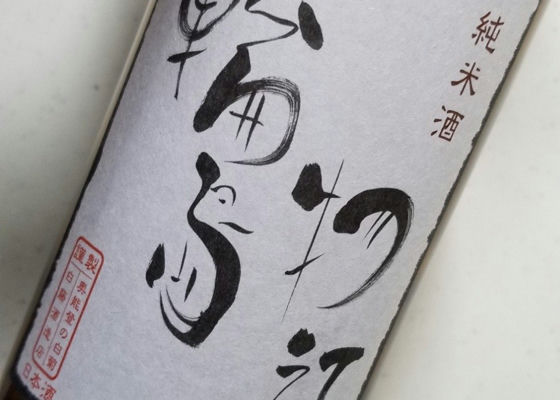 純米酒
輪島
物
謹製
奥能登の白菊
白藤酒造店
日本酒